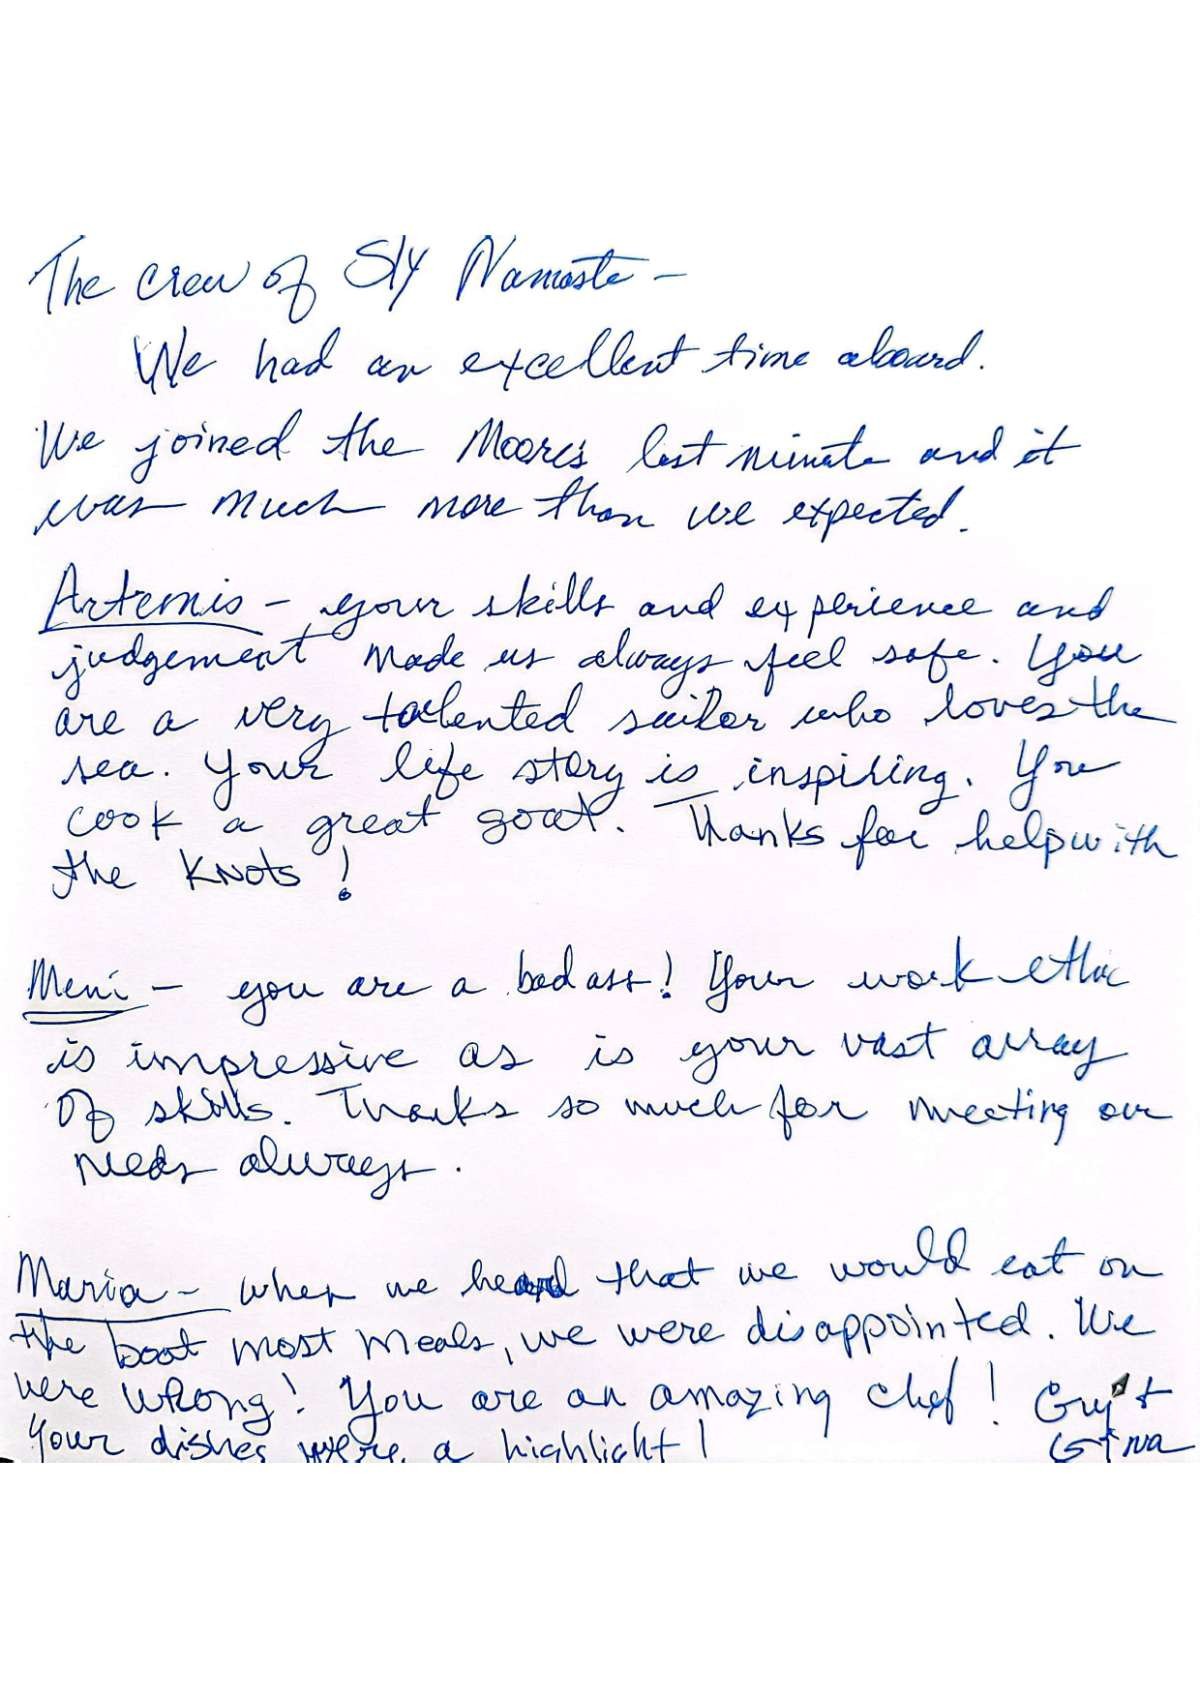 The crew of S/Y Namaste -
We had an excellent time aboard.
We joined the Moores last minute and it
was much more than we expected.
Artemis - your skills and experience and
judgement made us always feel safe. You
are a very talented sailor who loves the
sea. Your life story is inspiring. You
cook a great goat. Thanks for help with
the knots!
Meni - you are a badass! Your work ethic
is impressive as is your vast array
of skills. Thanks so much for meeting our
needs always.
Maria - when we heard that we would eat on
the boat most meals, we were disappointed. We
were wrong! You are an amazing chef!
Your dishes were a highlight!
+
Gina